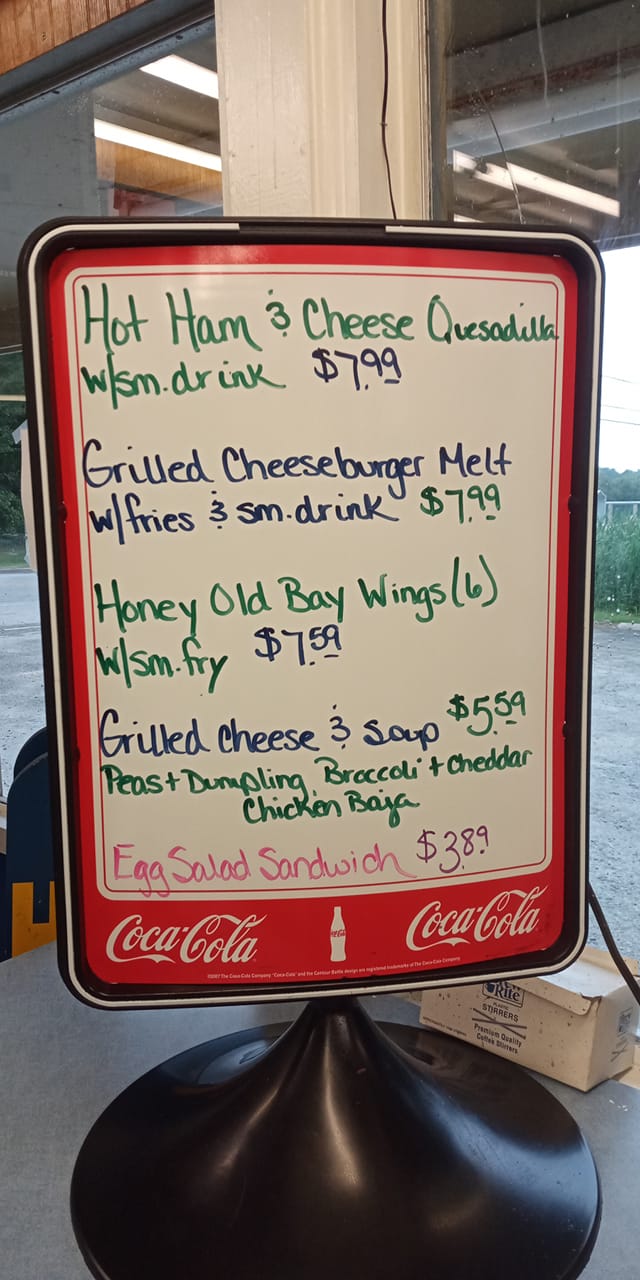 Hot Ham & Cheese Quesadilla
w/sm.drink $7.99
Grilled Cheeseburger Melt
w/fries & sm.drink $7.99
Honey Old Bay Wings (6)
w/sm.fry $7.59
Grilled cheese & Soup $5.59
Peas + Dumpling Broccoli + cheddar
Chicken Baja
Egg Salad Sandwich $3.89
Coca-Cola Coca-Cola
©2007 The Coca-Cola Company. "Coca-Cola" and the Contour Bottle design are registered trademarks of The Coca-Cola Company.
Rite
PLASTIC
STIRRERS
Premium Quality
Coffee Stirrers